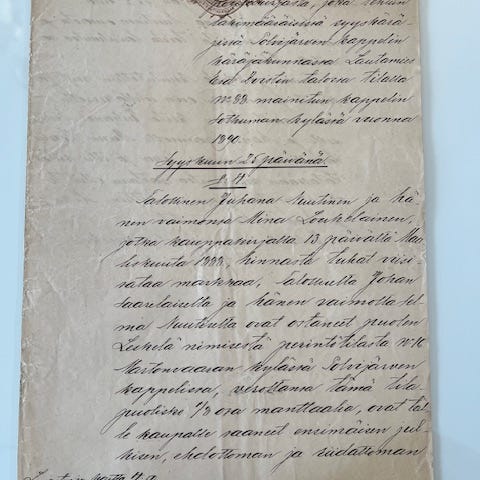 pöytäkirjasta, joka tehtiin
lakimääräisissä syyskärä-
jissä Polvijärven kappelin
käräjäkunnassa Lautamies
talossa tilasta
mainitun kappelin
Sotkuman kylässä vuonna
1890.
Syyskuun 25 päivänä.
Talollinen Juhana Nuutinen ja hä-
nen vaimonsa Mina Loukelainen,
jotka kauppakirjalla 13 päivältä Maa-
liskuuta 1888, hinnasta tuhat viisi
sataa markkaa, Talolliselta Johan
Saarelaiselta ja hänen vaimolta Sel-
ma Nuutiselta ovat ostaneet puolen
Leskelä nimisestä perintötilasta № 16
Martonvaaran kylässä Polvijärven
kappelissa, verottansa tämä tila-
puolisko 1/3 osa manttaalia, ovat täl-
le kaupalle saaneet ensimäisen jul-
kisen, ehdottoman ja riidattoman